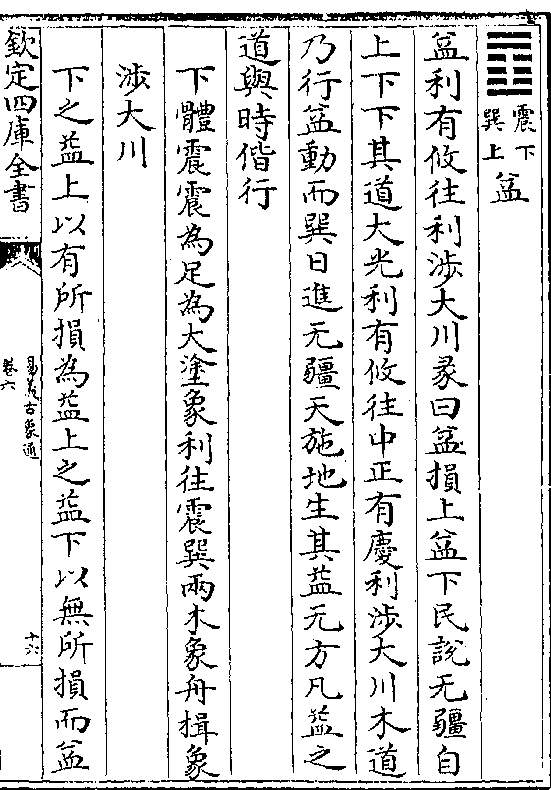 震下
巽上
益
益利有攸往利涉大川彖曰益損上益下民說无疆自
上下下其道大光利有攸往中正有慶利涉大川木道
乃行益動而巽日進无疆天施地生其益无方凡益之
道與時偕行
下體震震為足為大塗象利往震巽兩木象舟揖象
涉大川
下之益上以有所損為益上之益下以無所損而益
欽定四庫全書
易義古象通
卷六
十六